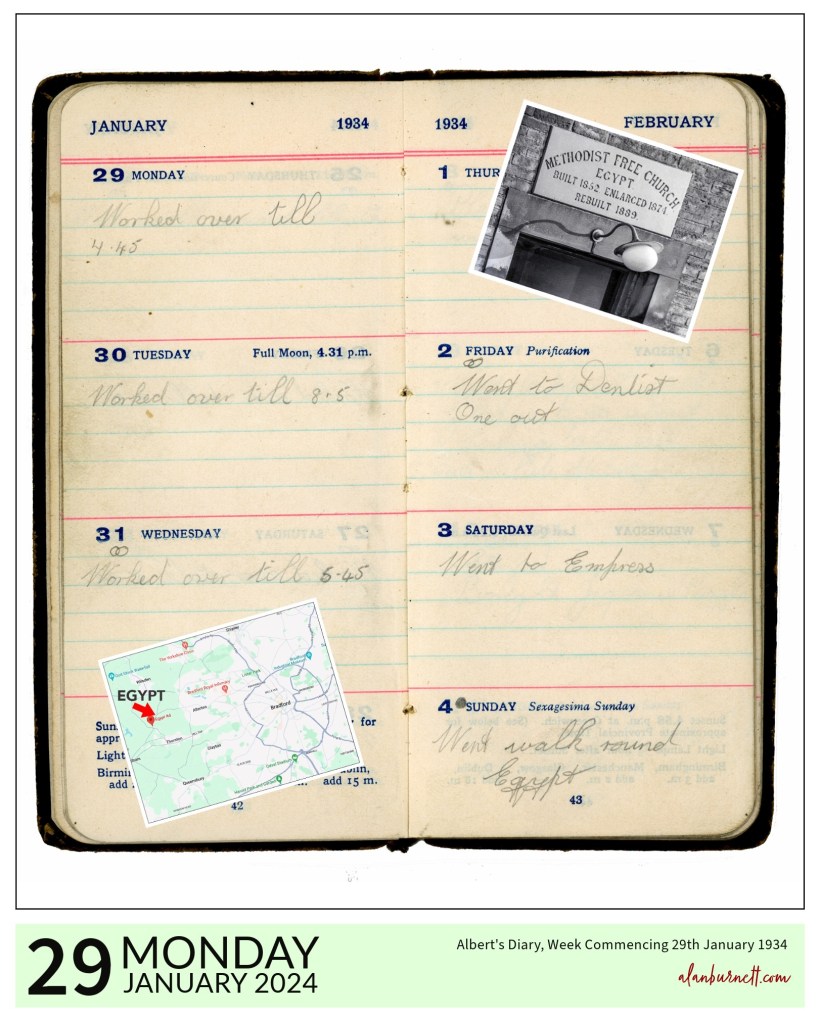 JANUARY 1934
29 MONDAY
Worked over till
4.45
30 TUESDAY Full Moon, 4.31 p.m.
Worked over till 8.5
31 WEDNESDAY
Worked over till 5.45
EGYPT
Bradford
Allerton
Thornton
Clayton
Queensbury
Sun
appr
Light
Birmin
add
for
blin,
add 15 m.
42
1934 FEBRUARY
1 THUR
METHODIST FREE CHURCH
EGYPT
BUILT 1852 ENLARGED 1874
REBUILT 1889
2 FRIDAY Purification
Went to Dentist
One out
3 SATURDAY
Went to Empress
4 SUNDAY Sexagesima Sunday
Went walk round
Egypt
43
29 MONDAY
JANUARY 2024
Albert's Diary, Week Commencing 29th January 1934
alanburnett.com